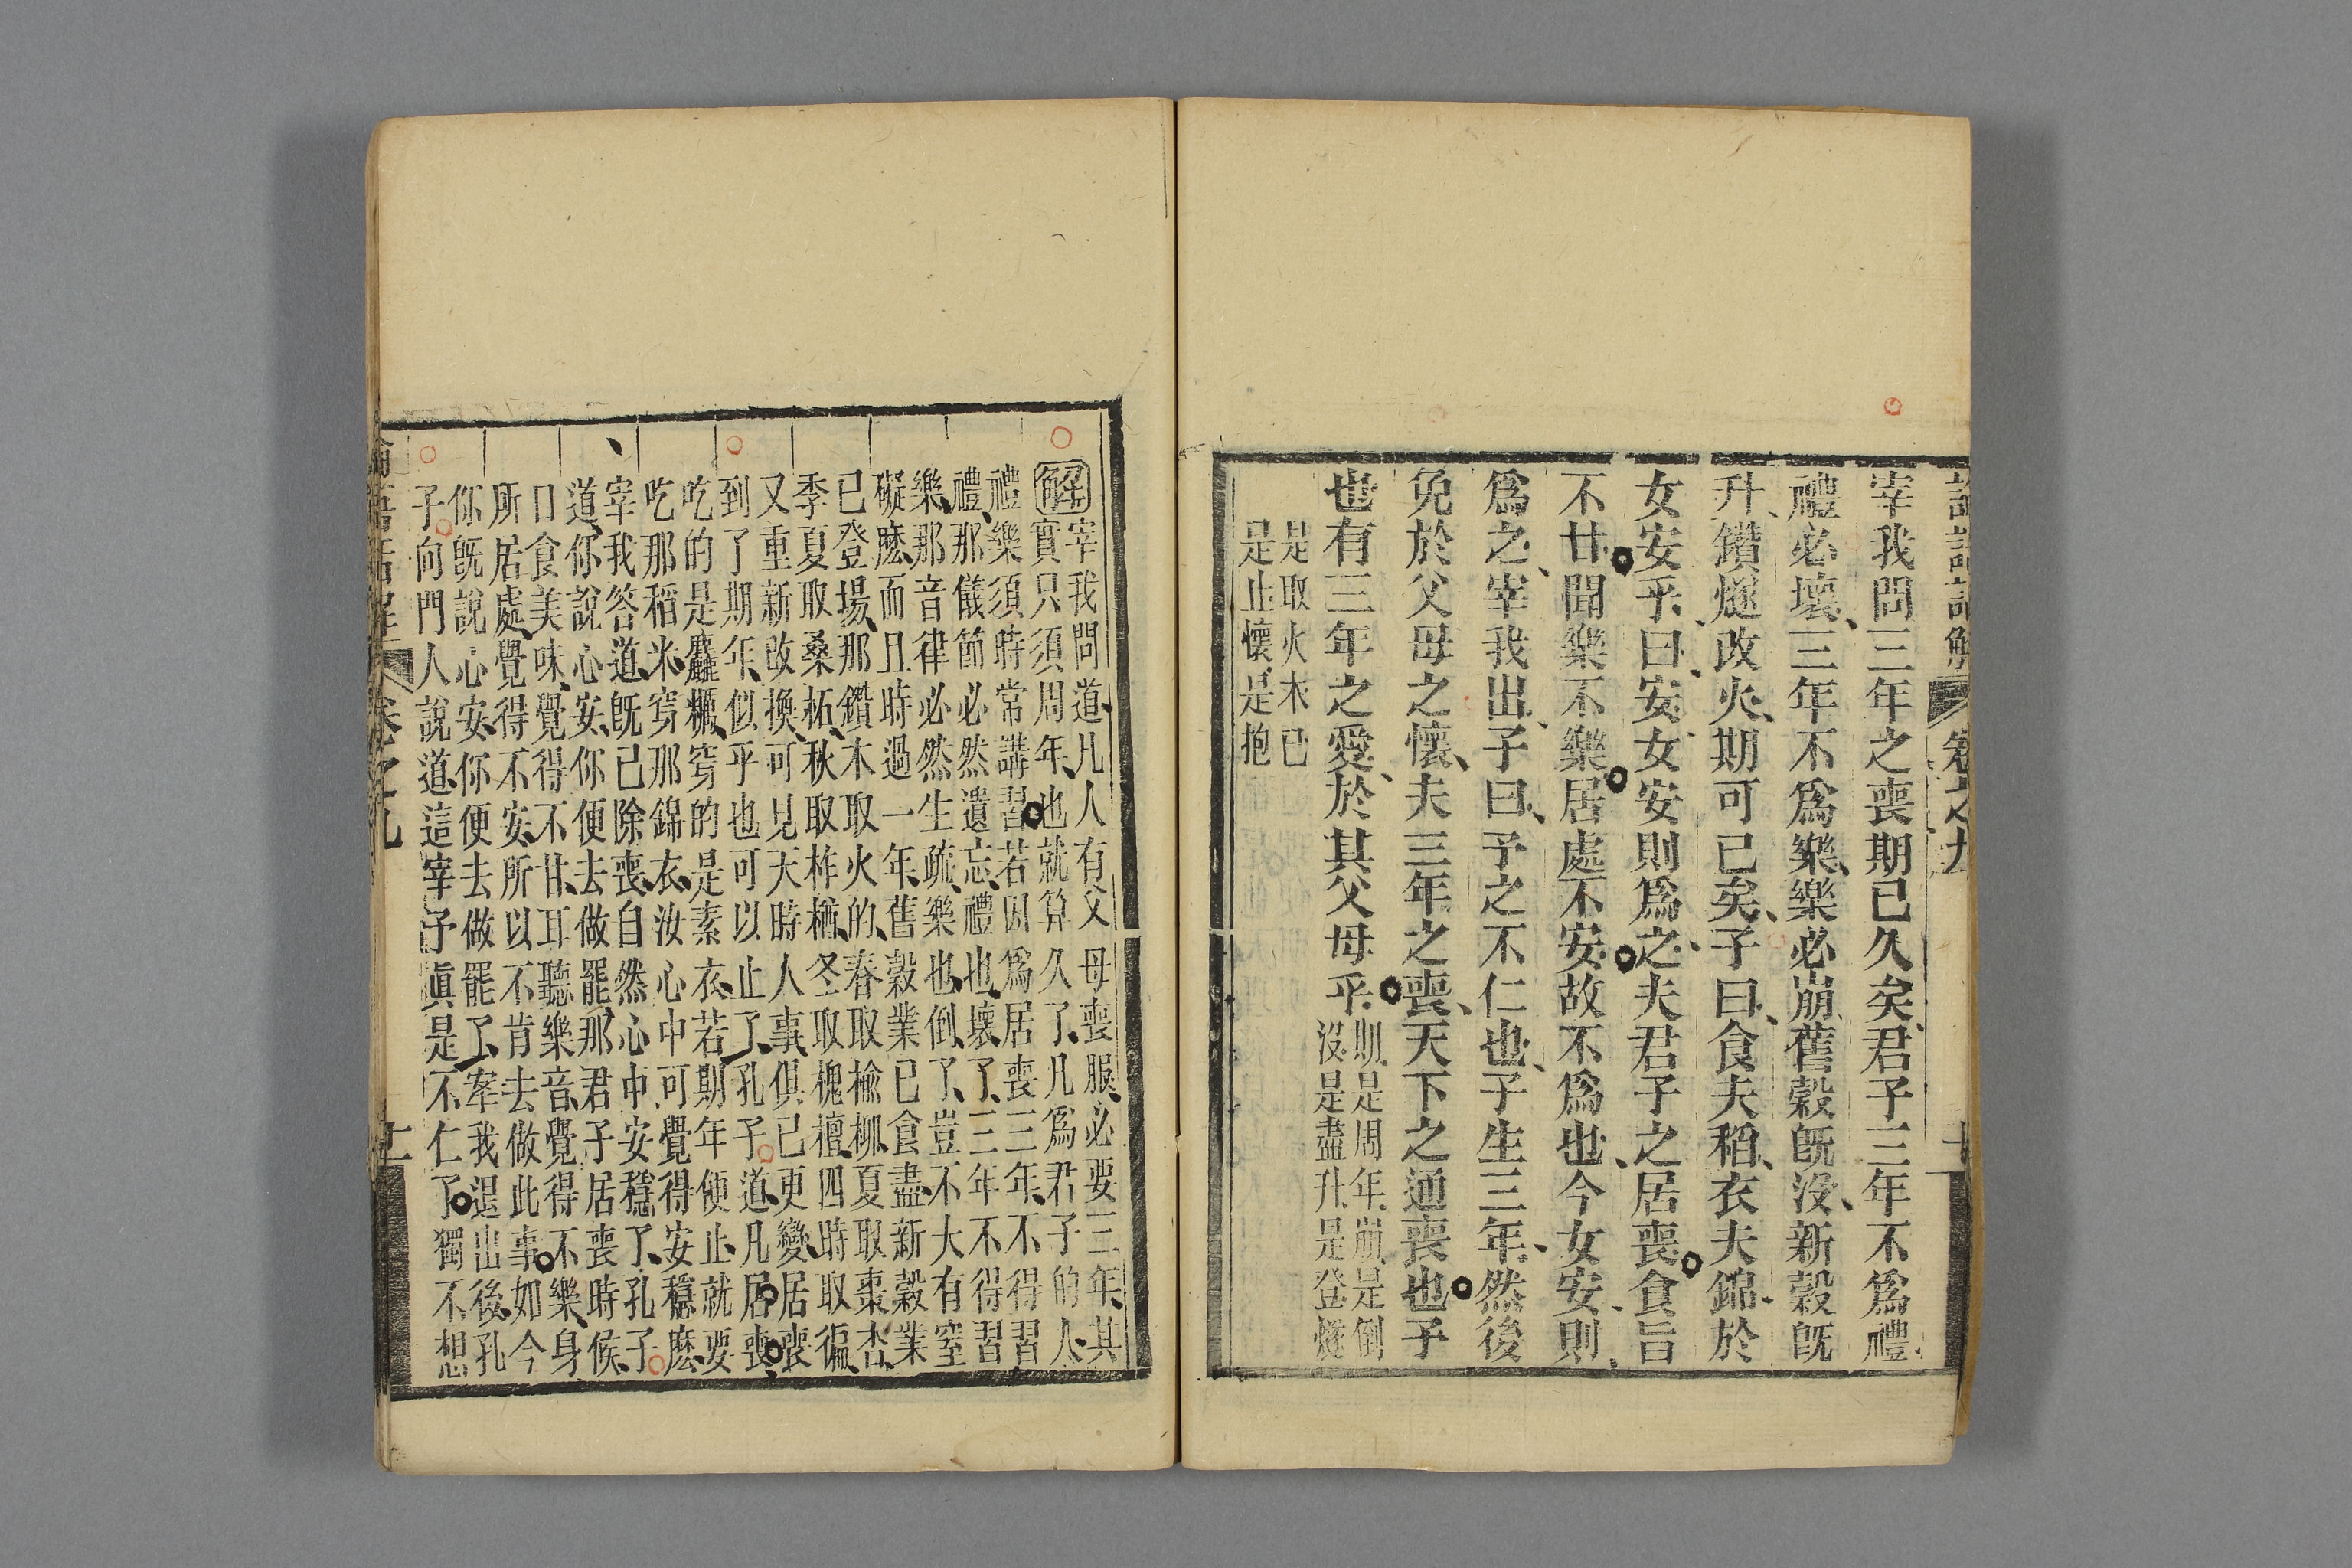 宰我問三年之喪期已久矣君子三年不爲禮
禮必壞三年不爲樂樂必崩舊穀既没新穀既
升鑽燧改火期可已矣子曰食夫稻衣夫錦於
女安乎曰安女安則爲之夫君子之居喪食旨
不甘聞樂不樂居處不安故不爲也今女安則
爲之宰我出子曰予之不仁也子生三年然後
免於父母之懷夫三年之喪天下之通喪也予
也有三年之愛於其父母乎
期是周年崩是倒
没是盡升是登燧
是取火木已
是止懷是抱
解
宰我問道凡人有父母喪服必要三年其
實只須周年也就算久了凡爲君子的人
禮樂須時常講習若因爲居喪三年不得習
禮那儀節必然遺忘禮也壞了三年不得習
樂那音律必然生疏樂也倒了豈不大有窒
礙麽而且時過一年舊穀業已食盡新穀業
已登場那鑽木取火的春取榆柳夏取棗杏
季夏取桑柘秋取柞楢冬取槐檀四時取徧
又重新改換可見天時人事俱已更變居喪
到了期年似乎也可以止了孔子道凡居喪
吃的是麤糲穿的是素衣若期年便止就要
吃那稻米穿那錦衣汝心中可覺得安穩麽
宰我答道既已除喪自然心中安穩了孔子
道你說心安你便去做罷那君子居喪時候
口食美味覺得不甘耳聽樂音覺得不樂身
所居處覺得不安所以不肯去做此事如今
你既說心安你便去做罷了宰我退出後孔
子向門人說道這宰予眞是不仁了獨不想